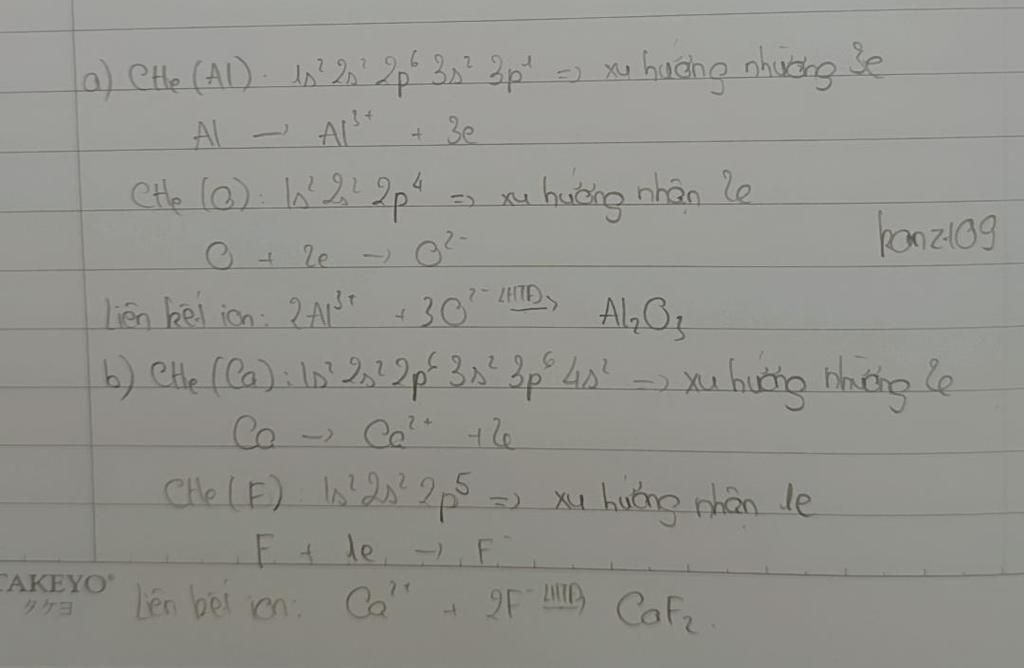 a) CHe (Al): 1s² 2s² 2p⁶ 3s² 3p¹ => xu hướng nhường 3e
Al → Al³⁺ + 3e
CHe (O): 1s² 2s² 2p⁴ => xu hướng nhận 2e
O + 2e → O²⁻
hanz109
Liên kết ion: 2Al³⁺ + 3O²⁻ → Al₂O₃
b) CHe (Ca): 1s² 2s² 2p⁶ 3s² 3p⁶ 4s² => xu hướng nhường 2e
Ca → Ca²⁺ + 2e
CHe (F): 1s² 2s² 2p⁵ => xu hướng nhận 1e
F + 1e → F⁻
TAKEYO®
タケヨ
Liên kết ion: Ca²⁺ + 2F⁻ → CaF₂.